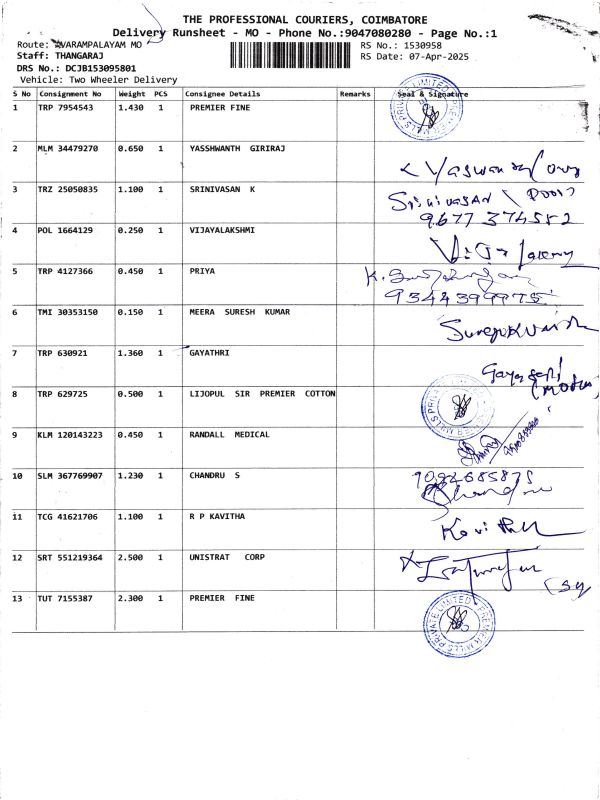 THE PROFESSIONAL COURIERS, COIMBATORE
Delivery Runsheet - MO - Phone No.:9047080280 - Page No.:1
Route: AVARAMPALAYAM MO RS No.: 1530958
Staff: THANGARAJ RS Date: 07-Apr-2025
DRS No.: DCJB153095801
Vehicle: Two Wheeler Delivery
S No Consignment No Weight PCS Consignee Details Remarks Seal & Signature
1 TRP 7954543 1.430 1 PREMIER FINE
2 MLM 34479270 0.650 1 YASSHWANTH GIRIRAJ
3 TRZ 25050835 1.100 1 SRINIVASAN K Srinivasan
9677374582
4 POL 1664129 0.250 1 VIJAYALAKSHMI
5 TRP 4127366 0.450 1 PRIYA
9344399975
6 TMI 30353150 0.150 1 MEERA SURESH KUMAR
7 TRP 630921 1.360 1 GAYATHRI
8 TRP 629725 0.500 1 LIJOPUL SIR PREMIER COTTON
9 KLM 120143223 0.450 1 RANDALL MEDICAL
10 SLM 367769907 1.230 1 CHANDRU S
11 TCG 41621706 1.100 1 R P KAVITHA
12 SRT 551219364 2.500 1 UNISTRAT CORP
13 TUT 7155387 2.300 1 PREMIER FINE
PREMIER MILLS PRIVATE LIMITED